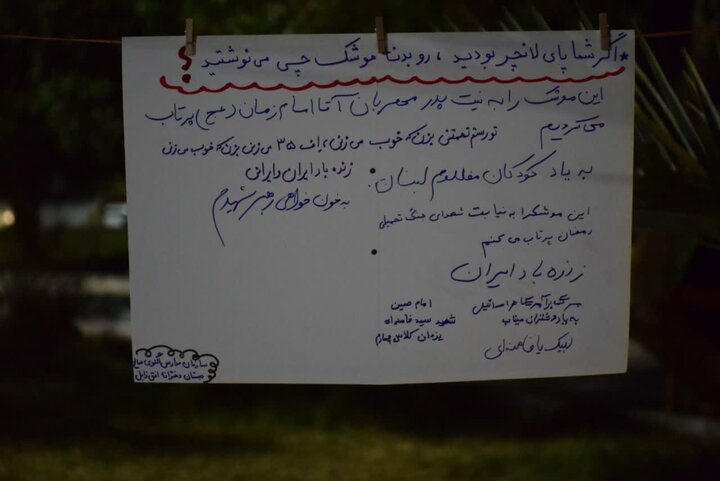 * اگر شما پای لانچر بودید ، رو بدنه موشک چی می‌نوشتید ؟
این موشک را به نیت پدر مهربان آقا امام زمان (عج) پرتاب
می کردیم
تو رستم تهمتنی بزن که خوب می زنی ، اف ۳۵ می زنی بزن که خوب می زنی
زنده باد ایران و ایرانی
به یاد کودکان مظلوم لبنان .
به خون خواهی رهبر شهیدم
این موشک را به نیابت شهدای جنگ تحمیلی
رمضان پرتاب می کنم
زنده باد ایران
مرگ بر آمریکا هم اسرائیل
امام حسین
به یاد دختران میناب
شهید سید خامنه‌ای
یزدان کلاس چهارم
لبیک یا خامنه‌ای
سازمان مدارس
دبستان دخترانه افق زابل